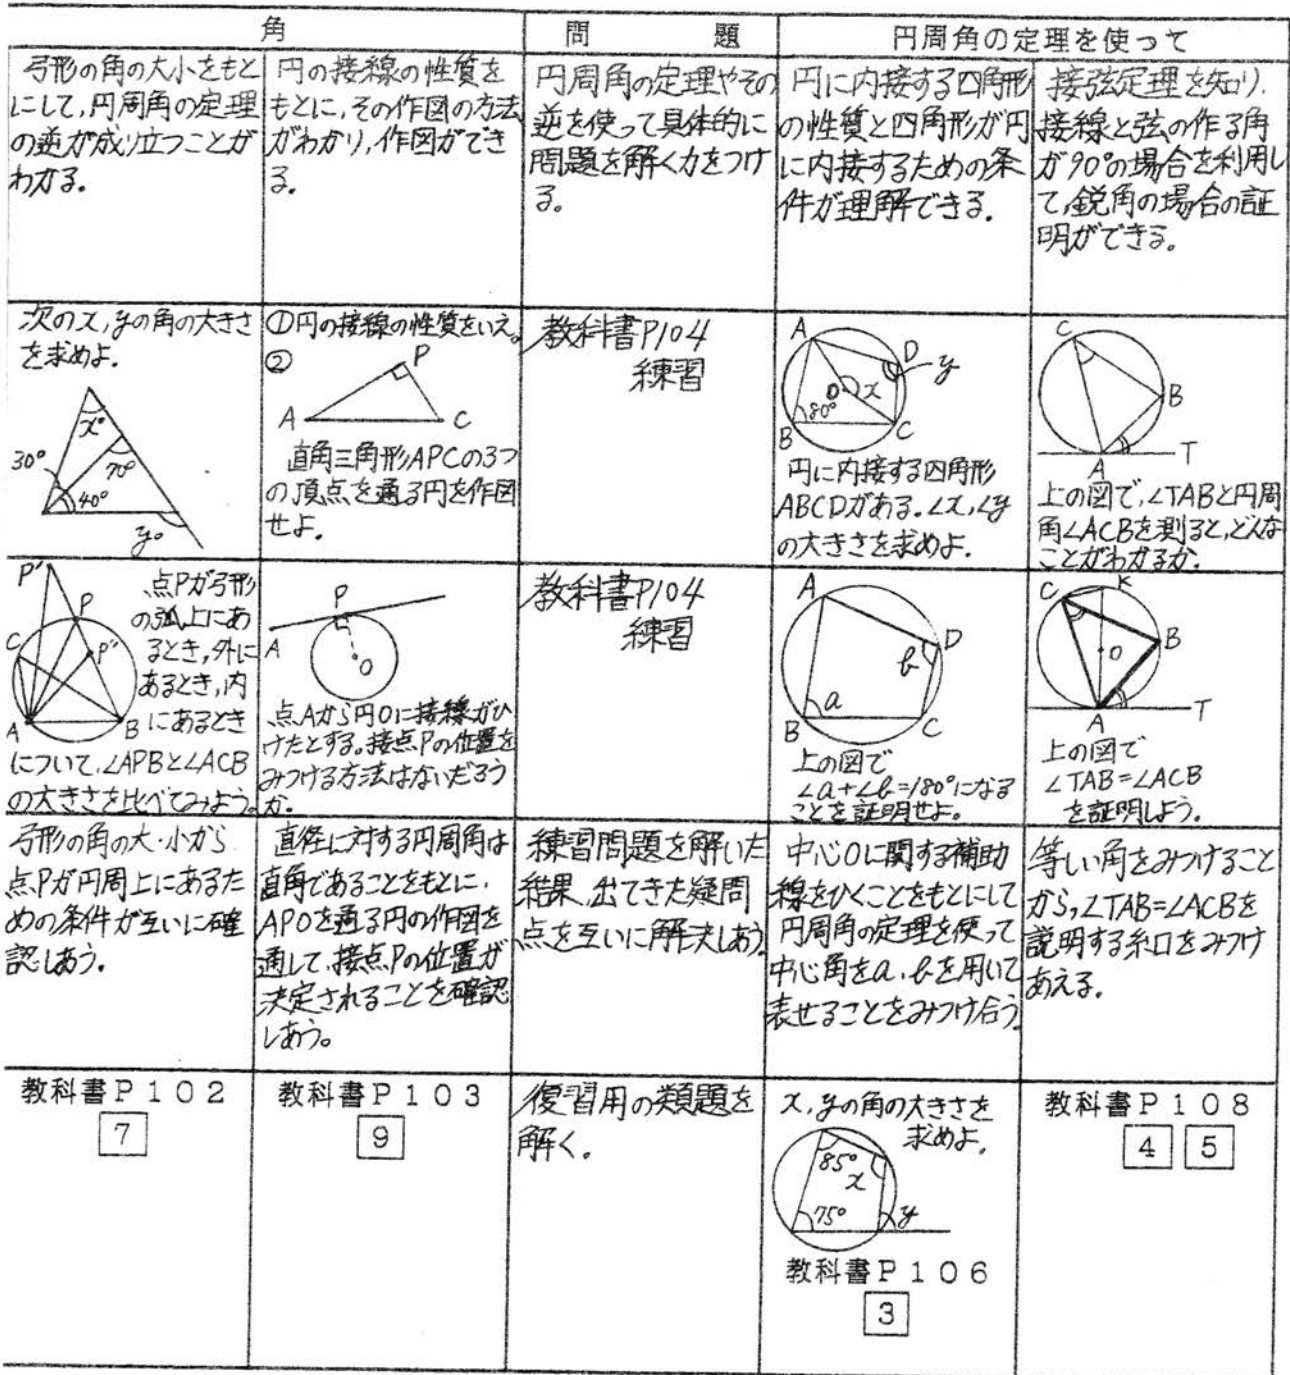 角
問 題
円周角の定理を使って
弓形の角の大小をもと
にして,円周角の定理
の逆が成り立つことが
わかる。
円の接線の性質を
もとに,その作図の方法
がわかり,作図ができ
る。
円周角の定理やその
逆を使って具体的に
問題を解く力をつけ
る。
円に内接する四角形
の性質と四角形が円
に内接するための条
件が理解できる.
接弦定理を知り.
接線と弦の作る角
が90°の場合を利用し
て,鋭角の場合の証
明ができる。
次のx,yの角の大きさ
を求めよ.
x°
30°
70°
40°
y°
①円の接線の性質をいえ。
②
P
A
C
直角三角形APCの3つ
の頂点を通る円を作図
せよ.
教科書P104
練習
A
D
y
O
x
80°
B
C
円に内接する四角形
ABCDがある.∠x,∠y
の大きさを求めよ.
C
B
A
T
上の図で,∠TABと円周
角∠ACBを測ると,どんな
ことがわかるか.
P'
P
C
P"
A
B
点Pが弓形
の弧上にあ
るとき,外に
あるとき,内
にあるとき
について,∠APBと∠ACB
の大きさを比べてみよう。
P
A
O
点Aから円Oに接線がひ
けたとする。接点Pの位置を
みつける方法はないだろう
か.
教科書P104
練習
A
D
b
a
B
C
上の図で
∠a+∠b=180°になる
ことを証明せよ。
C
K
B
O
A
T
上の図で
∠TAB=∠ACB
を証明しよう。
弓形の角の大・小から
点Pが円周上にあるた
めの条件が互いに確
認しあう。
直径に対する円周角は
直角であることをもとに.
APOを通る円の作図を
通して,接点Pの位置が
決定されることを確認
しあう。
練習問題を解いた
結果.出てきた疑問
点を互いに解決しあう.
中心Oに関する補助
線をひくことをもとにして
円周角の定理を使って
中心角をa.bを用いて
表せることをみつけ合う.
等しい角をみつけること
から,∠TAB=∠ACBを
説明する糸口をみつけ
あえる.
教科書P102
7
教科書P103
9
復習用の類題を
解く。
x,yの角の大きさを
求めよ。
85°
x
75°
y
教科書P106
3
教科書P108
4 5